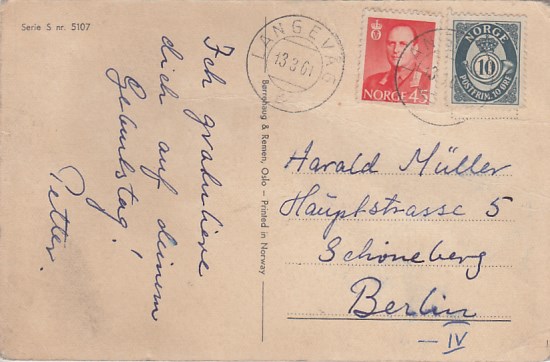 Serie S nr. 5107
Ich gratuliere
dich auf deinem
Geburtstag!
Petter.
Bernhaug & Remen, Oslo – Printed in Norway
LANGEVÅG
13 3 61
NORGE 45
NORGE
10
POSTFRIM. 10 ØRE
Harald Müller
Hauptstrasse 5
Schöneberg
Berlin
– IV